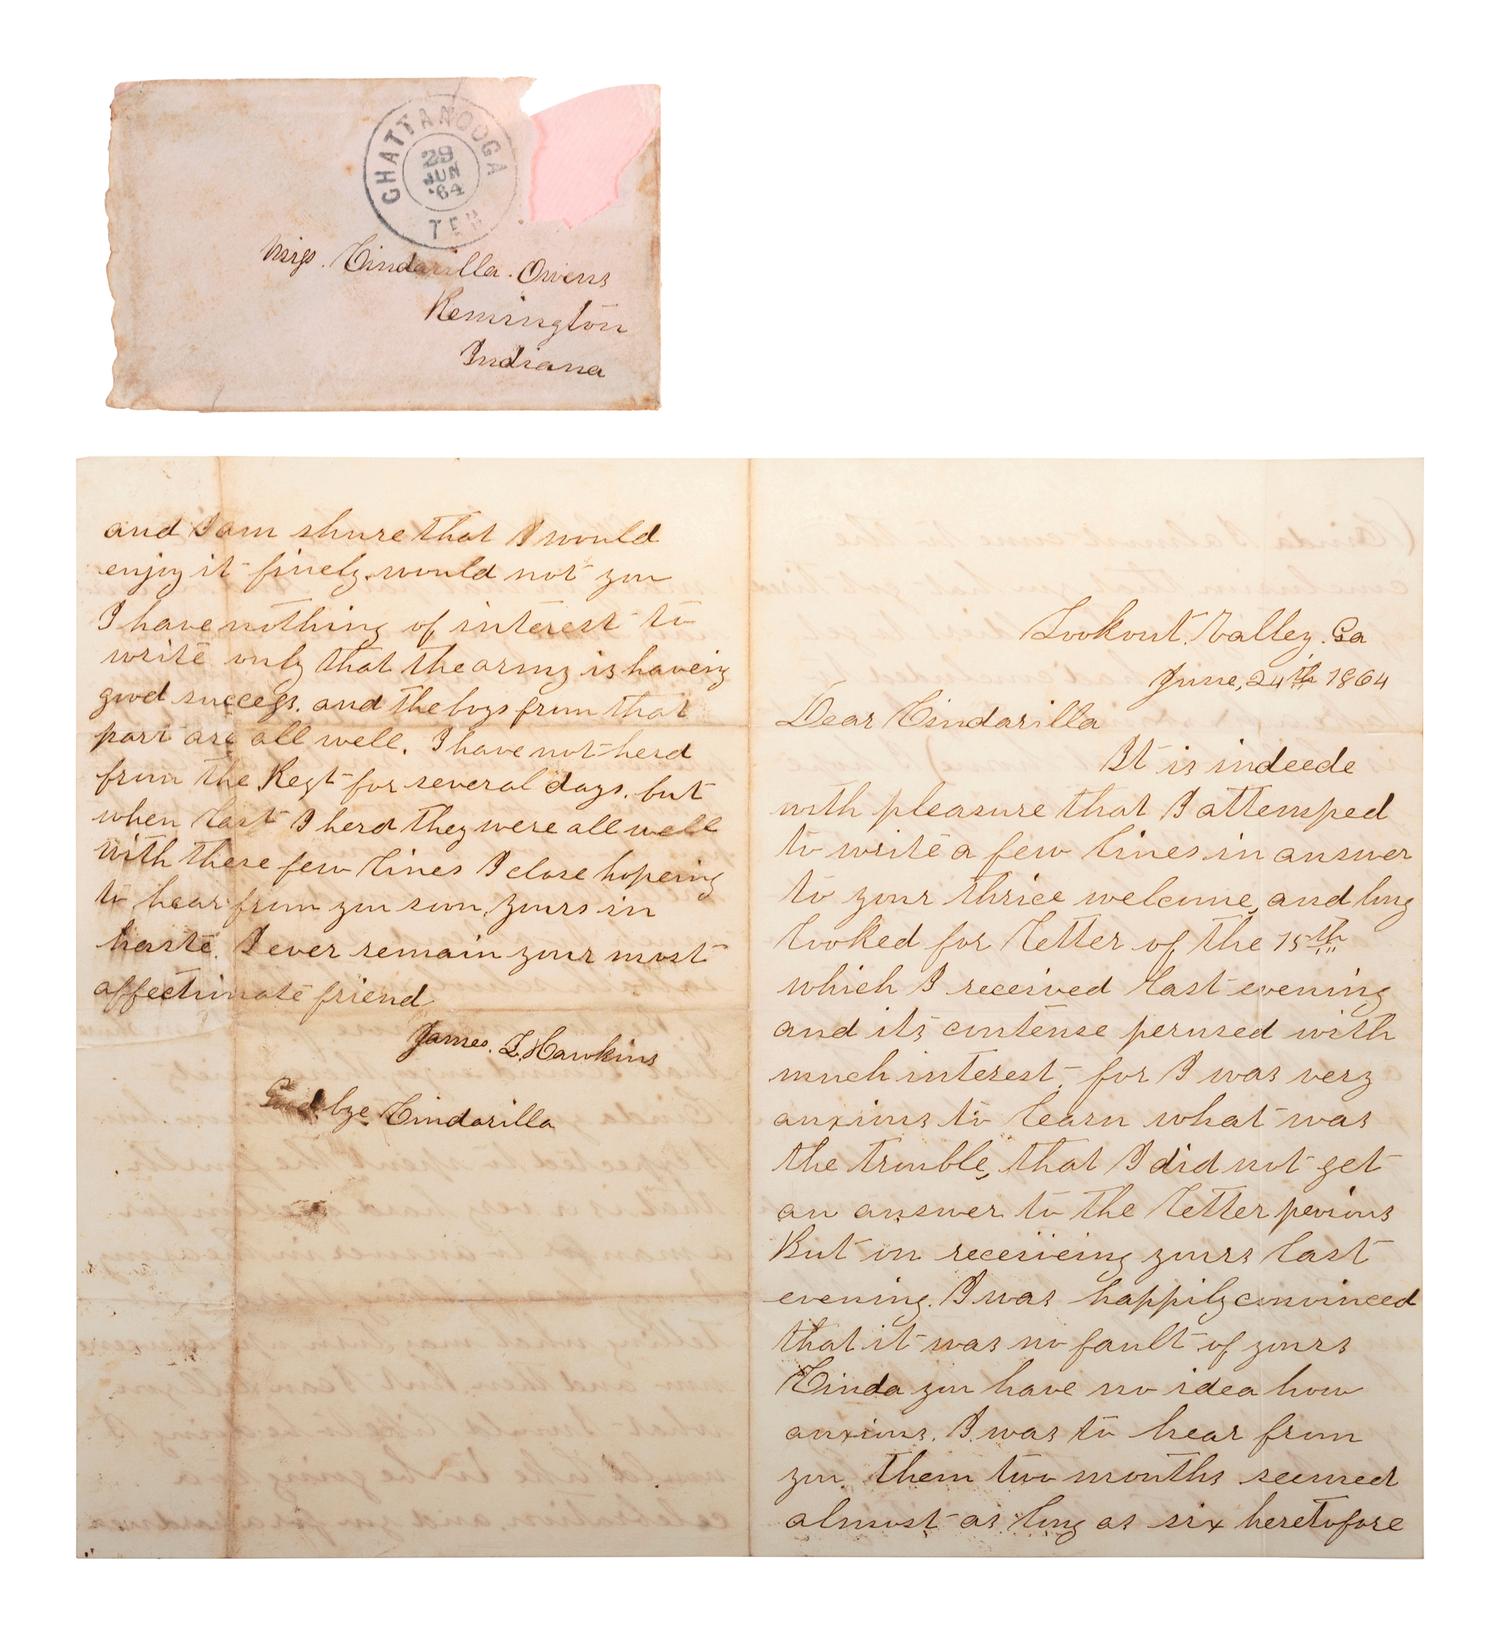 CHATTANOOGA
29
JUN
'64
TEN
Miss. Cindarilla. Owens
Remington
Indiana
Lookout. Valley. Ga
June, 24th 1864
Dear Cindarilla
It is indeede
with pleasure that I attemped
to write a few lines in answer
to your thrice welcome, and long
looked for letter of the 15th
which I received last evening
and its contense perused with
much interest, for I was very
anxious to learn what was
the trouble, that I did not get
an answer to the letter pevious
But on receiveing yours last
evening. I was happily convinced
that it was no fault of yours
Cinda you have no idea how
anxious. I was to hear from
you them two months seemed
almost as long as six heretofore
and I am shure that I would
enjoy it finely. would not you
I have nothing of interest to
write only that the army is haveing
good success. and the boys from that
part are all well. I have not herd
from the Regt for several days. but
when last I herd they were all well
with these few lines I close hopeing
to hear from you soon, yours in
haste. I ever remain your most
affectionate friend
James. L. Hawkins
Good bye Cindarilla